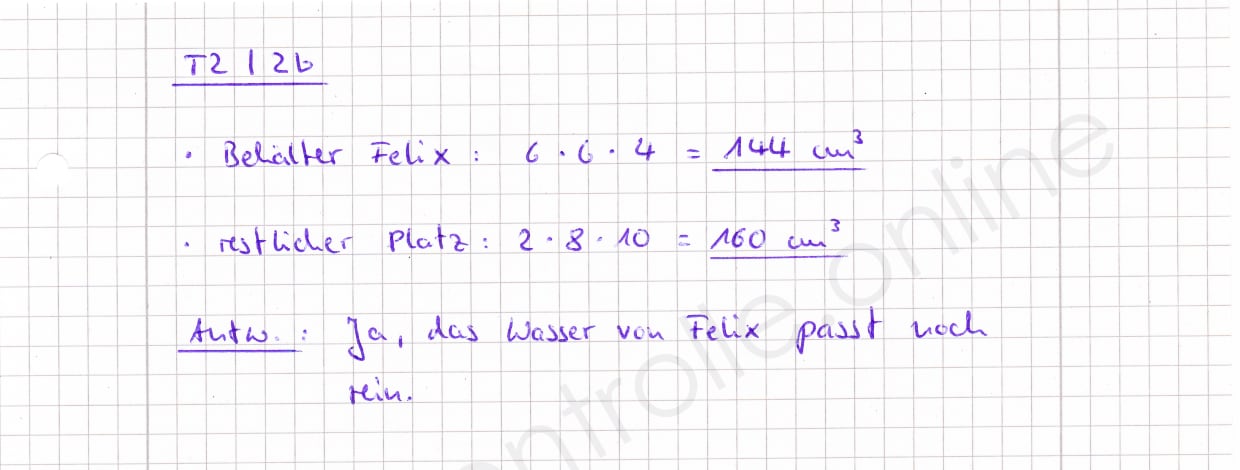 T2 | 2b
· Behälter Felix : 6 · 6 · 4 = 144 cm³
· restlicher Platz : 2 · 8 · 10 = 160 cm³
Antw. : Ja, das Wasser von Felix passt noch
rein.
ontrolle.online